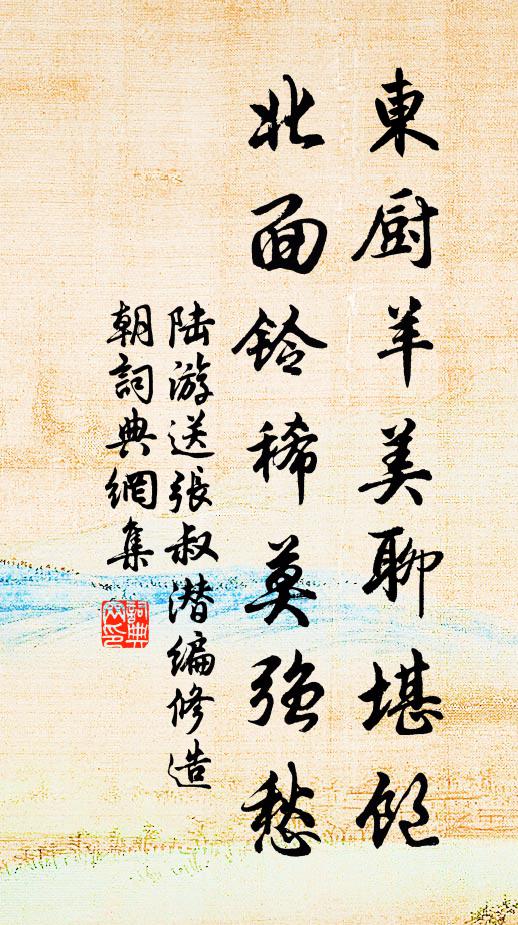 東厨羊美聊堪飽
北面鈴稀莫強愁
陆游送張叔潜編修造
朝詞典網集
詞典